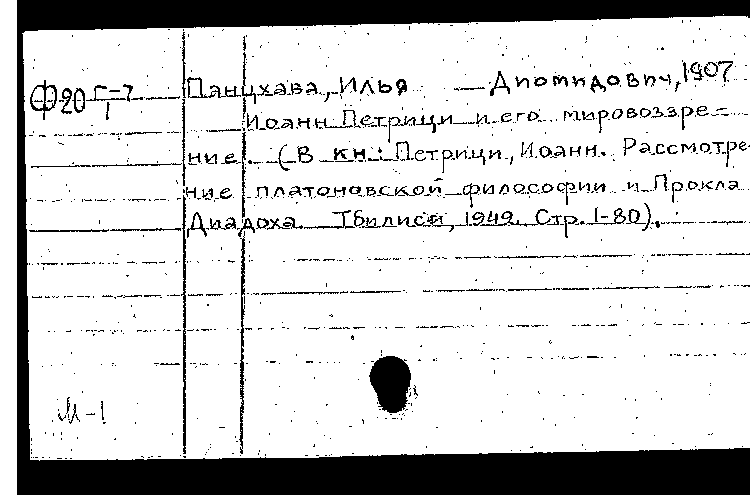 Ф20 Г-7/1 Панцхава, Илья Диомидович, 1907
Иоанн Петрици и его мировоззре-
ние. (В кн.: Петрици, Иоанн. Рассмотре-
ние платоновской философии и Прокла
Диадоха. Тбилиси, 1942. Стр. 1-80).
М-1